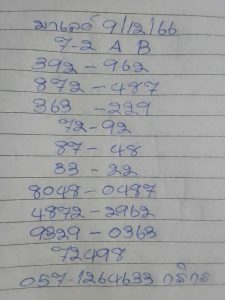 มาเลย์ 9/12/66
7-2 A B
392-962
872-487
363-229
72-92
87-48
33-22
8048-0487
4872-2962
9329-0363
72498
057-1264633 กสิกร